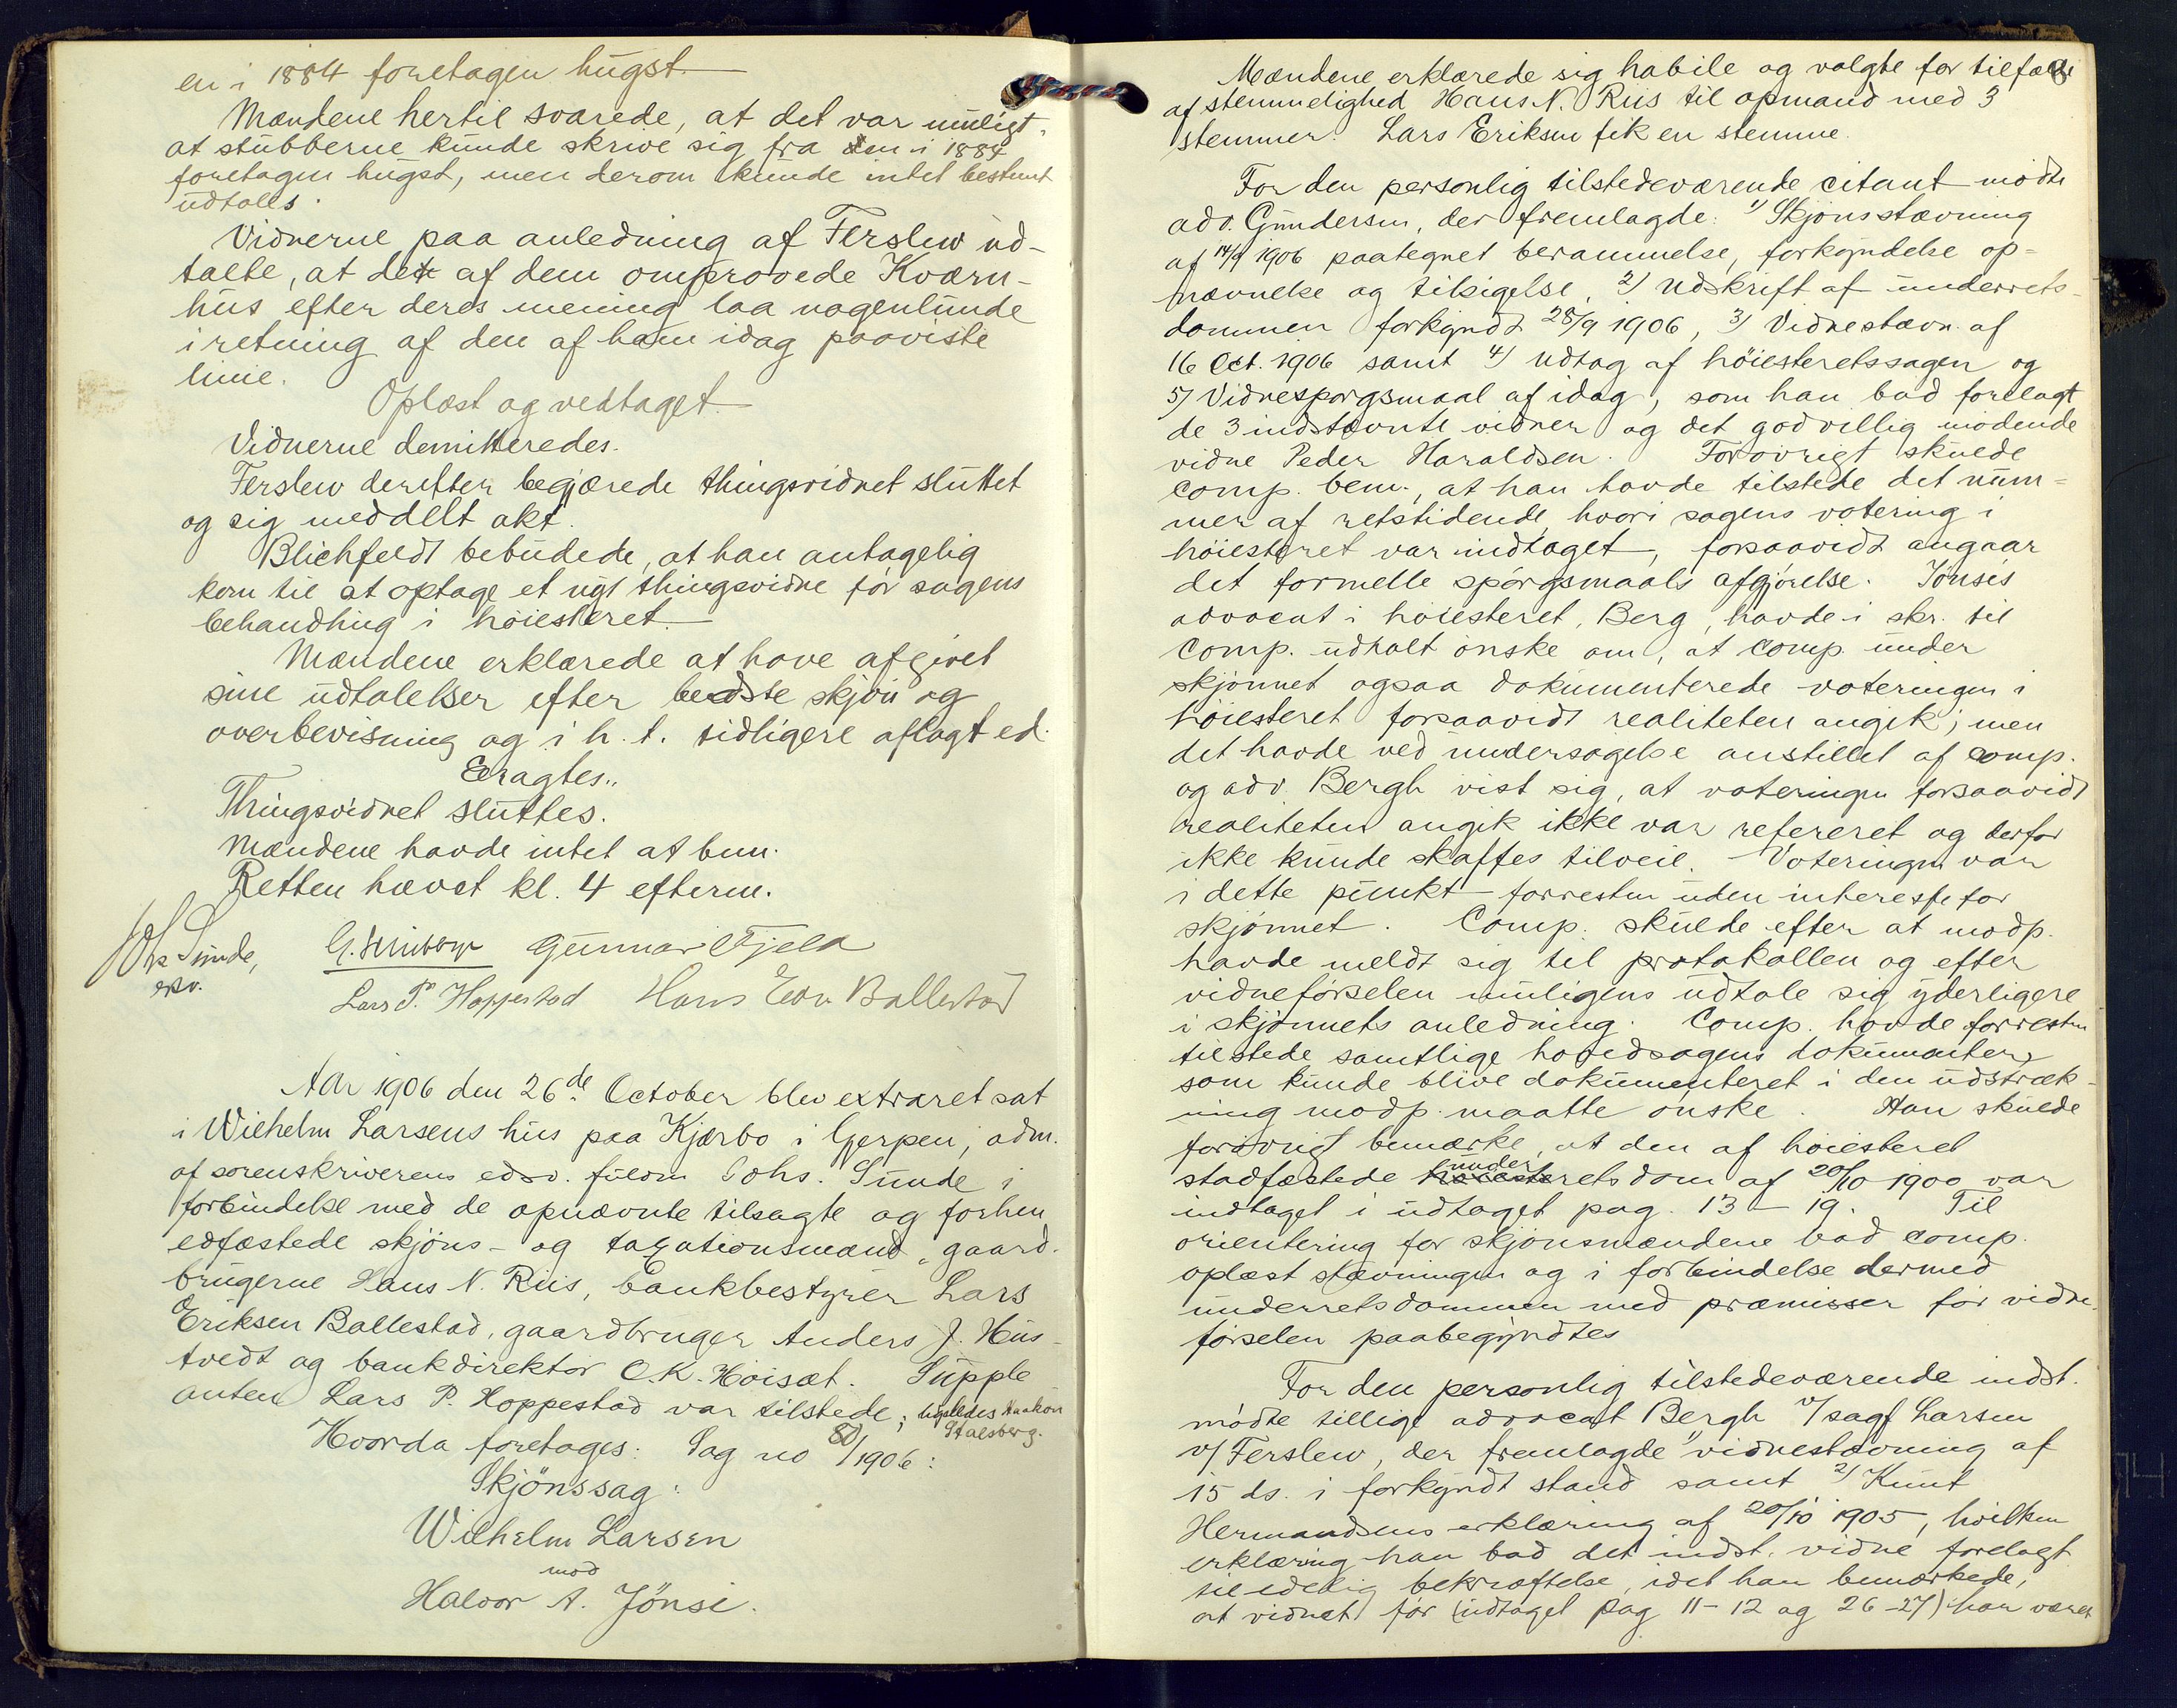 en i 1884 foretagen hugst.
Mændene hertil svarede, at det var muligt,
at stubberne kunde skrive sig fra den i 1884
foretagen hugst, men derom kunde intet bestemt
udtales.
Vidnerne paa anledning af Ferslew ud-
talte, at det af dem omprøvede Kværn-
hus efter deres mening laa nogenlunde
i retning af den af ham idag paaviste
linie.
Oplæst og vedtaget.
Vidnerne demitteredes.
Ferslew derefter begjærede thingsvidnet sluttet
og sig meddelt akt.
Blichfeldt bebudede, at han antagelig
kom til at optage et nyt thingsvidne før sagens
behandling i høiesteret.
Mændene erklærede at have afgivet
sine udtalelser efter bedste skjøn og
overbevisning og i h. t. tidligere aflagt ed.
Eragtes.
Thingsvidnet sluttes.
Mændene havde intet at bem.
Retten hævet kl. 4 efterm.
Johs Sunde, Gunnar Fjeld
edsv.
Lars P. Hoppestad Hans Edv. Ballestad
Aar 1906 den 26de October blev extraret sat
i Wilhelm Larsens hus paa Kjærbo i Gjerpen, adm.
af sorenskriverens edsv. fuldm Johs. Sunde i
forbindelse med de opnævnte tilsagte og forhen
edfæstede skjøns- og taxationsmænd, gaard-
brugerne Hans N. Riis, bankbestyrer Lars
Eriksen Ballestad, gaardbruger Anders J. Hus-
tvedt og bankdirektør O.K. Høisæt. Supple
anten Lars P. Hoppestad var tilstede; ligeledes Haakon
Stalsberg.
Hvorda foretages: Sag no 80/1906:
Skjönssag:
Wilhelm Larsen
mod
Halvor A. Jönsi.
Mændene erklærede sig habile og valgte for tilfælde
af stemmelighed Hans N. Riis til opmand med 3
stemmer. Lars Eriksen fik en stemme.
For den personlig tilstedeværende citant mødte
adv. Gundersen, der fremlagde: 1) Skjønsstævning
af 14/9 1906 paategnet berammelse, forkyndelse op-
nævnelse og tilsigelse, 2) Udskrift af underrets-
dommen forkyndt 28/9 1906, 3) Vidnestævn. af
16 Oct. 1906 samt 4) Udtog af høiesteretssagen og
5) Vidnespørgsmaal af idag, som han bad forelagt
de 3 indstævnte vidner og det godvillig mødende
vidne Peder Haraldsen. Forøvrigt skulde
comp. bem., at han havde tilstede det num-
mer af retstidende, hvori sagens votering i
høiesteret var indtaget, forsaavidt angaar
det formelle spørgsmaals afgjørelse. Jønsis
advocat i høiesteret, Berg, havde i skr. til
comp. udtalt ønske om, at comp. under
skjønnet ogsaa dokumenterede voteringen i
høiesteret forsaavidt realiteten angik; men
det havde ved undersøgelse anstillet af comp.
og adv. Bergh vist sig, at voteringen forsaavidt
realiteten angik ikke var refereret og derfor
ikke kunde skaffes tilveie. Voteringen var
i dette punkt forresten uden interesse for
skjønnet. Comp. skulde efter at modp.
havde meldt sig til protokollen og efter
vidneførselen muligens udtale sig yderligere
i skjønnets anledning. Comp. havde forresten
tilstede samtlige hovedsagens dokumenter,
som kunde blive dokumenteret i den udstræk-
ning modp. maatte ønske. Han skulde
forøvrigt bemærke, at den af høiesteret
stadfæstede underretsdom af 20/10 1900 var
indtaget i udtoget pag. 13 - 19. Til
orientering for skjønsmændene bad comp.
oplæst stævningen og i forbindelse dermed
underretsdommen med præmisser før vidne-
førselen paabegyndtes
For den personlig tilstedeværende indst.
mødte tillige advocat Bergh v/ sagf Larsen
v/ Ferslew, der fremlagde 1) vidnestævning af
15 ds. i forkyndt stand samt 2) Knut
Hermandsens erklæring af 20/10 1905, hvilken
erklæring han bad det indst. vidne forelagt
til edelig bekræftelse, idet han bemærkede,
at vidnet før (udtoget pag 11-12 og 26-27) har været